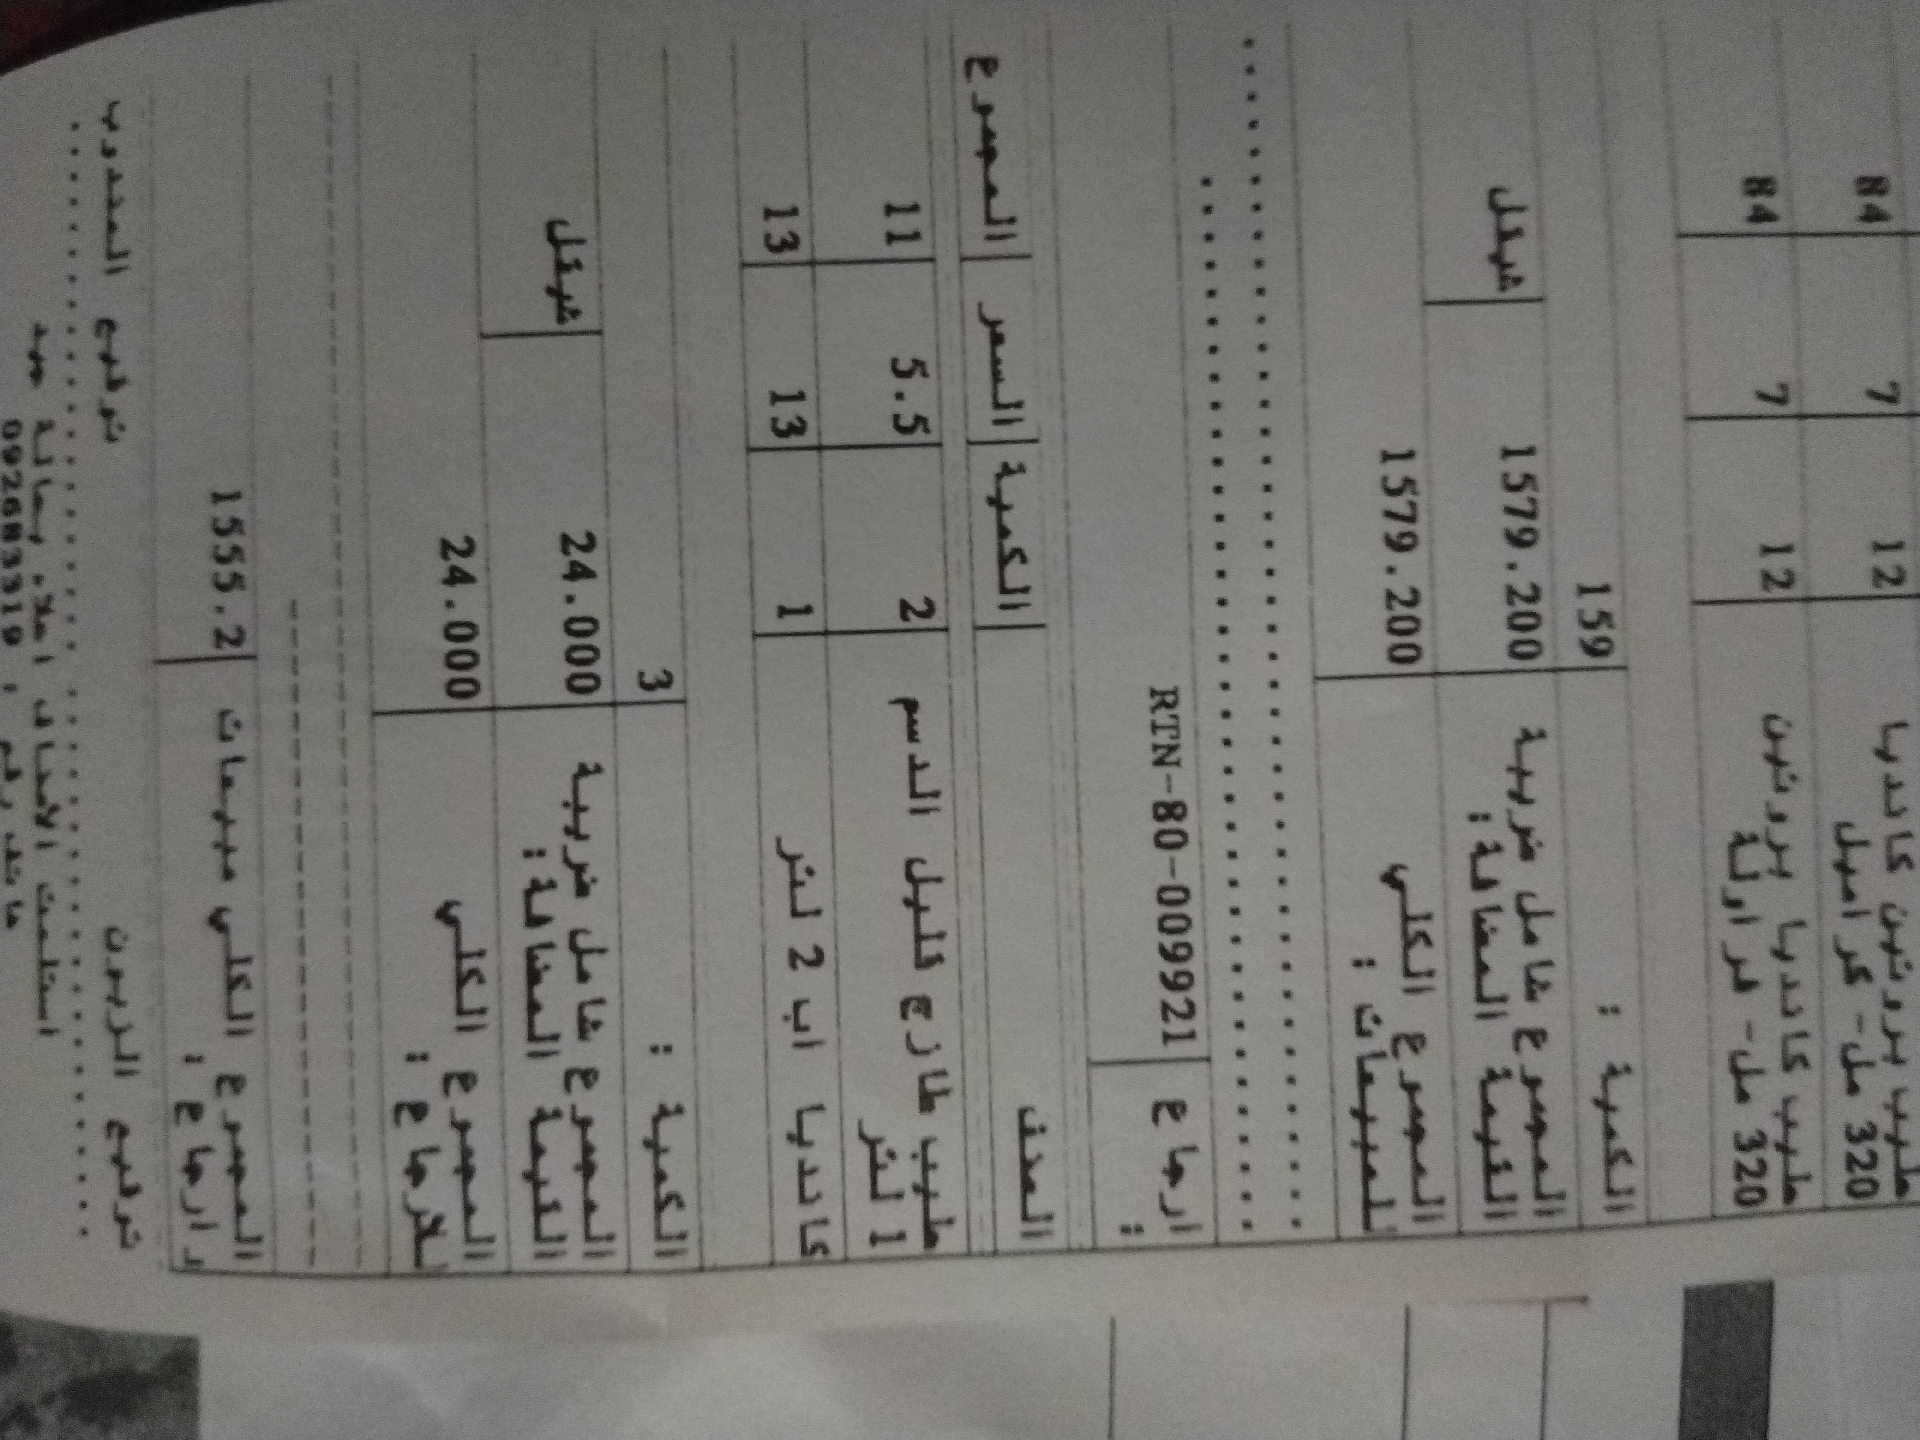 حليب بروتين كانديا 12 7 84
320 مل- كراميل
حليب كانديا بروتين 12 7 84
320 مل- فراولة
الكمية : 159
المجموع شامل ضريبة 1579.200 شيكل
القيمة المضافة:
المجموع الكلي 1579.200
للمبيعات :
ارجاع RTN-80-009921
:
الصنف الكمية السعر المجموع
حليب طازج قليل الدسم 2 5.5 11
1 لتر
كانديا اب 2 لتر 1 13 13
الكمية : 3
المجموع شامل ضريبة 24.000 شيكل
القيمة المضافة:
المجموع الكلي 24.000
للارجاع :
المجموع الكلي مبيعات 1555.2
و ارجاع :
توقيع الزبون توقيع المندوب
استلمت الأصناف اعلاه بحالة جيد
هاتف رقم : 092683319